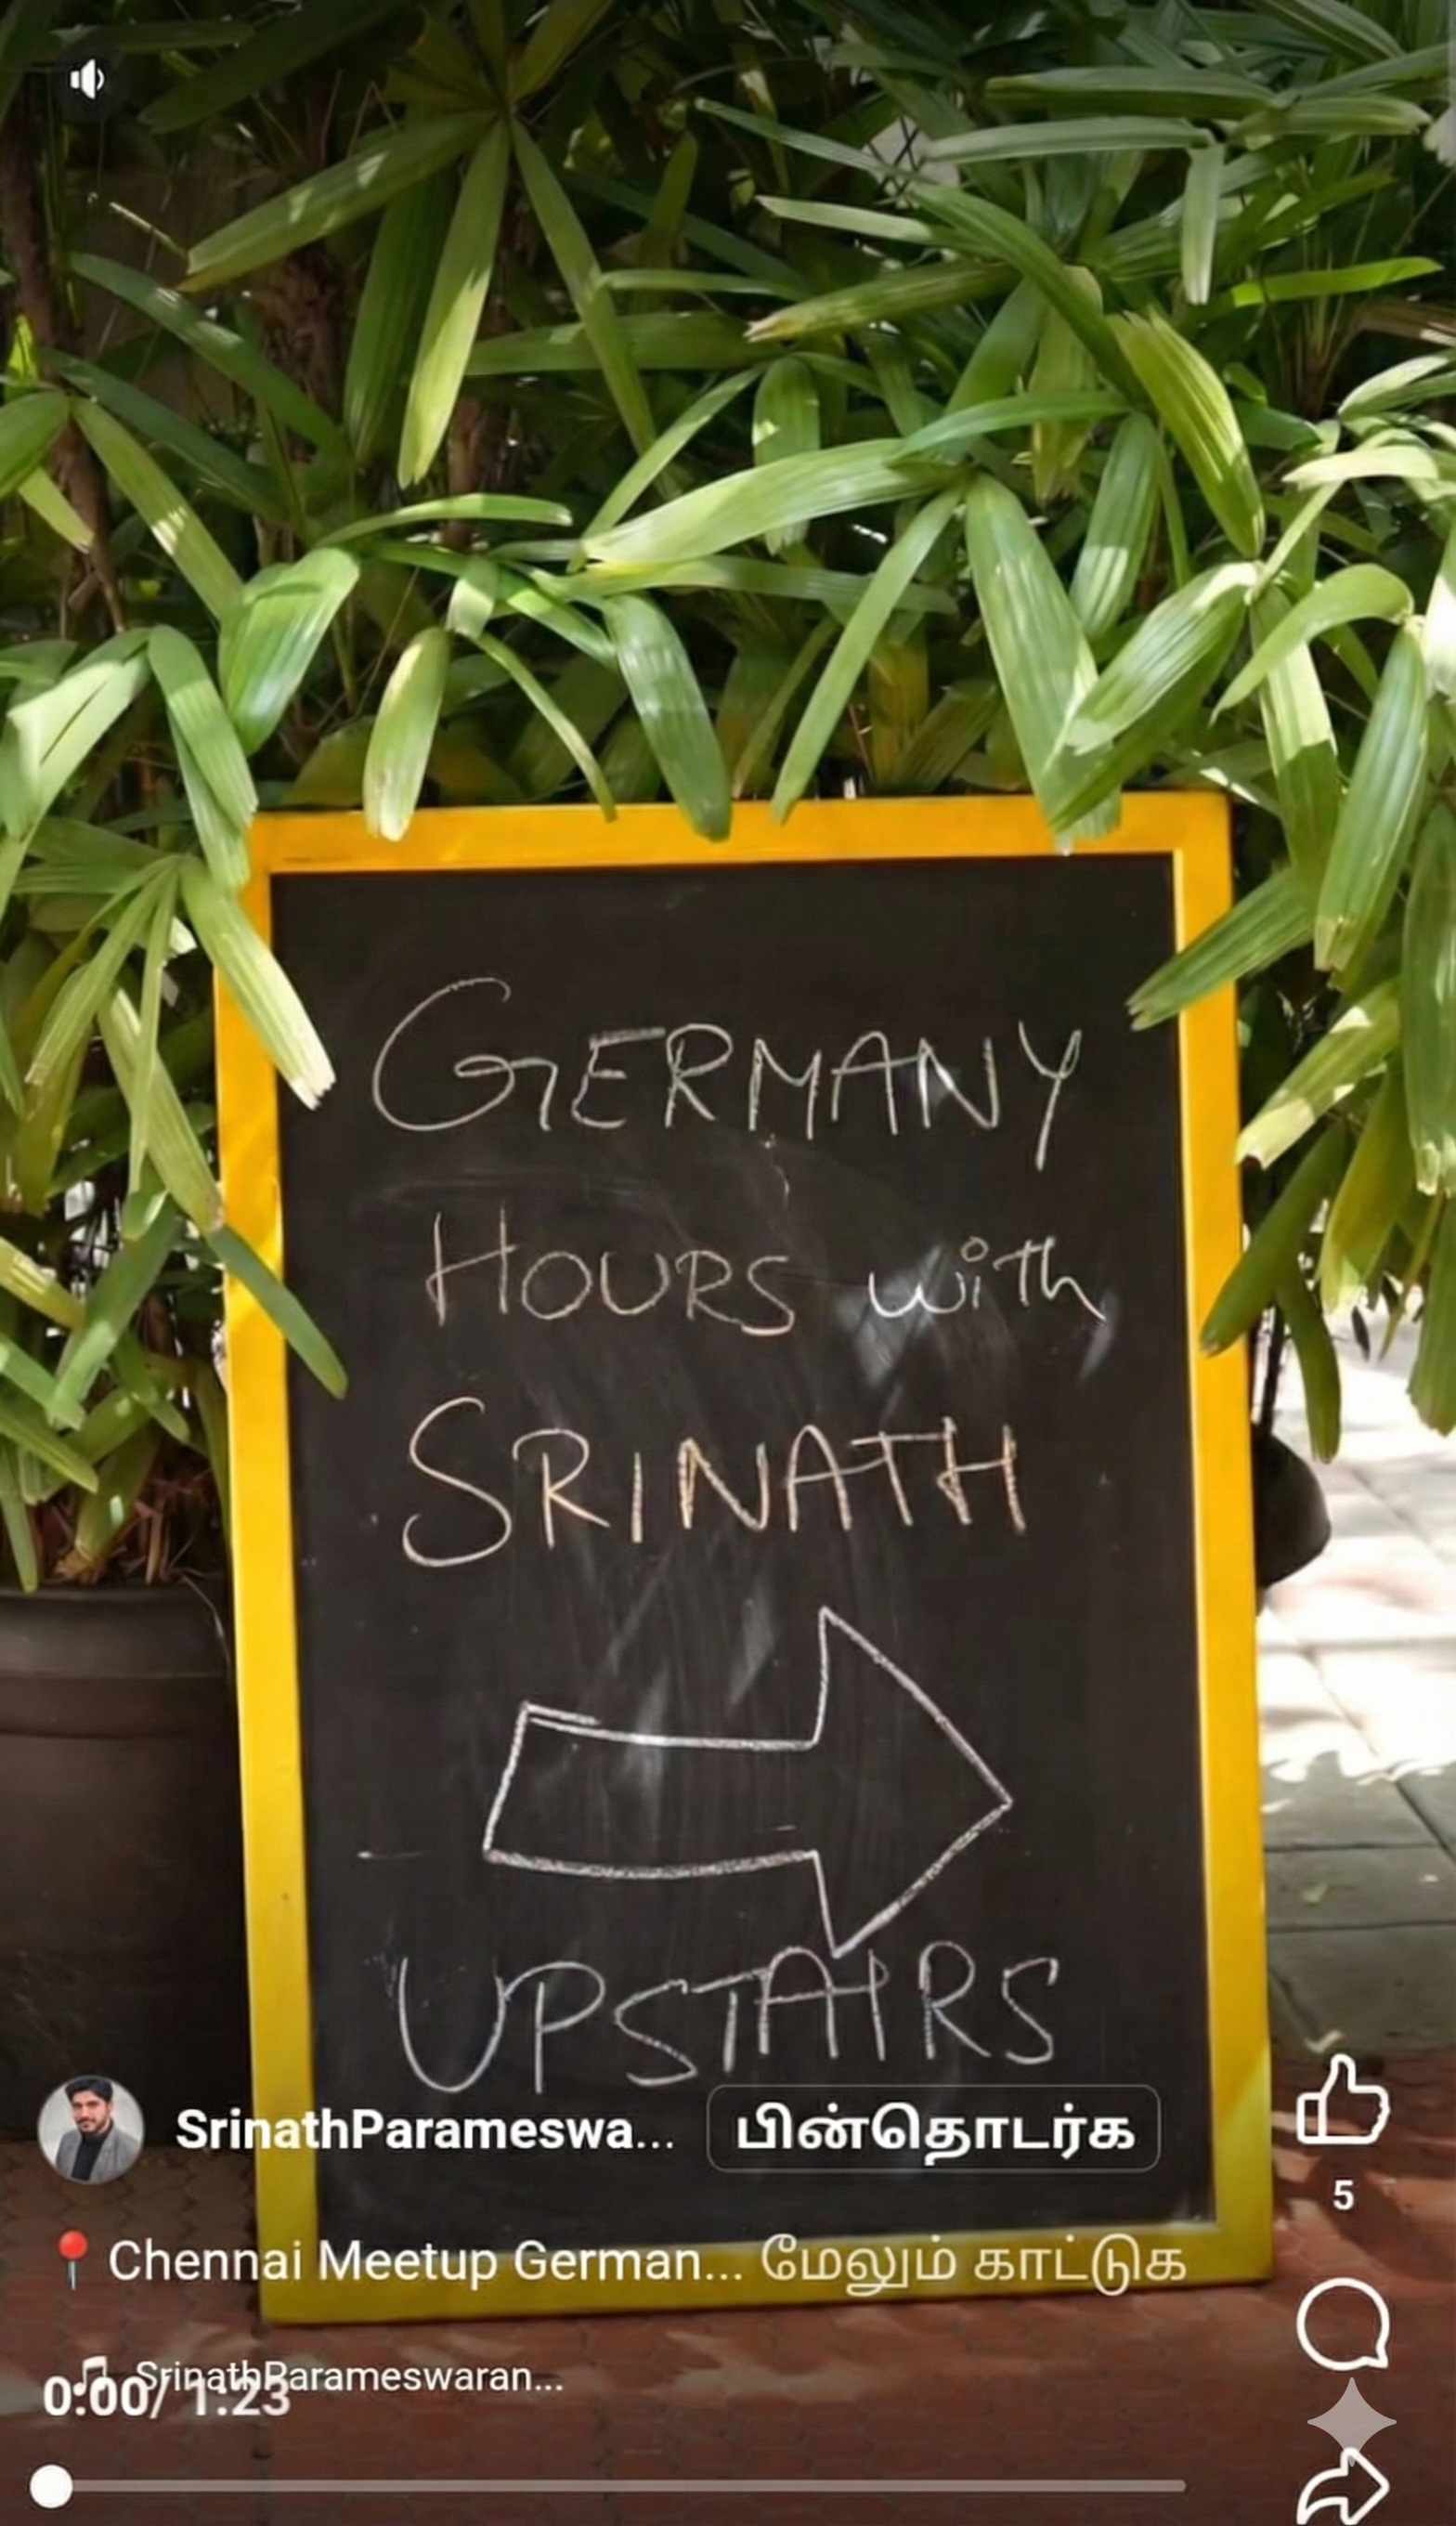 GERMANY
HOURS with
SRINATH
UPSTAIRS
SrinathParameswa... பின்தொடர்க
5
📍 Chennai Meetup German... மேலும் காட்டுக
SrinathParameswaran...
0:00/ 1:23